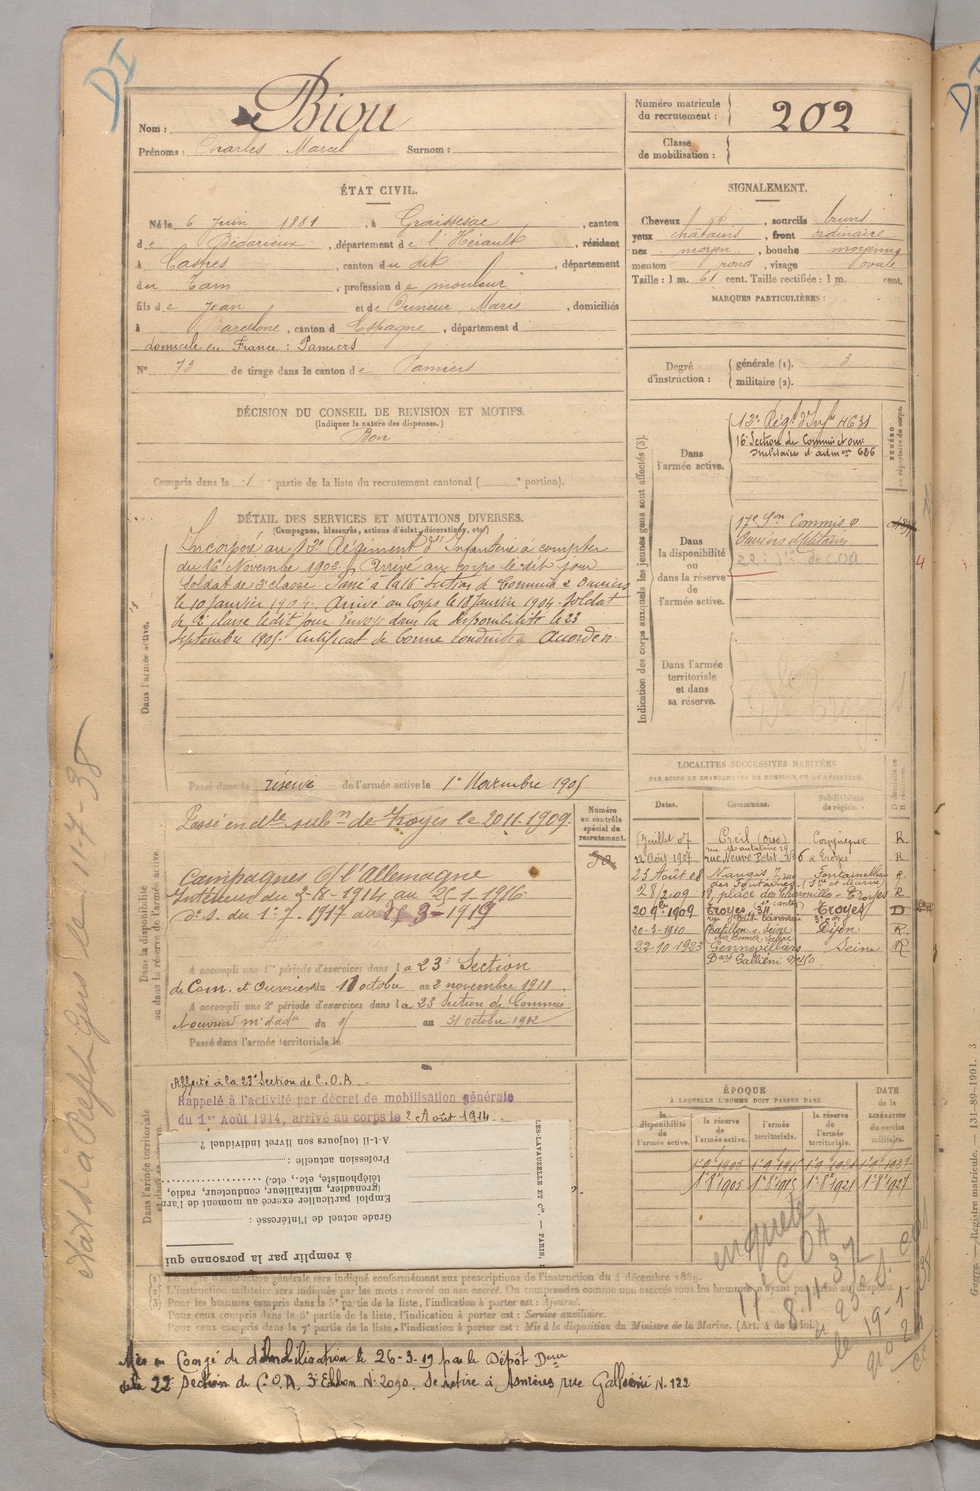 DI
Nom : Biou
Prénoms : Charles Marcel Surnom :
Numéro matricule du recrutement : 202
Classe de mobilisation :
ÉTAT CIVIL.
Né le 6 Juin 1881, à Graissesac, canton
de Bédarieux, département de l'Hérault, résidant
à Castres, canton du dit, département
du Tarn, profession de mouleur
fils de Jean et de Marie, domiciliés
à Barcelone, canton d Espagne, département d
domicile en France : Pamiers
N° 73 de tirage dans le canton de Pamiers
SIGNALEMENT.
Cheveux, sourcils bruns
yeux chatains, front ordinaire
nez moyen, bouche moyenne
menton rond, visage ovale
Taille : 1 m. 61 cent. Taille rectifiée : 1 m. cent.
MARQUES PARTICULIÈRES :
Degré d'instruction : générale (1). 3
militaire (2).
DÉCISION DU CONSEIL DE REVISION ET MOTIFS.
(Indiquer la nature des dispenses.)
Bon
Compris dans la 1 partie de la liste du recrutement cantonal ( portion).
DÉTAIL DES SERVICES ET MUTATIONS DIVERSES.
(Campagnes, blessures, actions d'éclat, décorations, etc.)
Dans l'armée active.
Incorporé au Régiment d'Infanterie à compter
du 16 Novembre 1902. Arrivé au corps le dit jour
soldat de 2e classe. Passé à la 16e Section de Commis & Ouvriers
le 10 Janvier 1904. Arrivé au Corps le 18 Janvier 1904. Soldat
de 2e classe ledit jour Envoyé dans la disponibilité le 23
Septembre 1905. Certificat de bonne conduite Accordé
Passé dans la réserve de l'armée active le 1er Novembre 1905
Indication des corps auxquels les jeunes gens sont affectés (3).
Dans l'armée active.
Régt d'Infie 4631
16 Section de Commis et ouv
militaires d'admon 626
Dans la disponibilité ou dans la réserve de l'armée active.
17e Son Commis &
Ouvriers militaires
22e Son de COA
Dans l'armée territoriale et dans sa réserve.
NUMÉRO au répertoire du corps.
LOCALITÉS SUCCESSIVES HABITÉES
PAR SUITE DE CHANGEMENTS DE DOMICILE OU DE RÉSIDENCE.
Dates. Communes. Subdivisions de région.
Juillet 07 Creil (Oise) Compiègne R
22 Août 1907 rue Neuve Petit 6 à Troyes R
23 Août 08 Nangis Fontainebleau R
28/2.09 place de Troyes R
20 9bre 1909 Troyes Troyes D
20-3-1910 Chatillon s. Seine Dijon R
22-10 1923 Gennevilliers Seine R
Bard Galliéni
Dans la disponibilité ou dans la réserve de l'armée active.
Numéro au contrôle spécial du recrutement.
Passé en dle subon de Troyes le 20 11. 1909.
Campagnes c/ l'Allemagne
Intérieur du 2-8-1914 au 25-1-1916
do s. du 1er.7.1917 au 25 3-1919
A accompli une 1re période d'exercices dans la 23e Section
de Com. et Ouvriers du 11 octobre au 2 novembre 1911.
A accompli une 2e période d'exercices dans la 23 Section de Commis
& ouvriers du au 31 octobre 1912
Passé dans l'armée territoriale le
Dans l'armée territoriale
Affecté à la 23e Section de C.O.A.
Rappelé à l'activité par décret de mobilisation générale
du 1er Août 1914, arrivé au corps le 2 Août 1914.
A-t-il toujours son livret individuel ?
Profession actuelle :
téléphoniste, etc., etc.)
(grenadier, mitrailleur, conducteur, radio,
Emploi particulier exercé au moment de l'arm
Grade actuel de l'intéressé :
à remplir par la personne qui
ES-LAVAUZELLE ET Cie. — PARIS,
ÉPOQUE
À LAQUELLE L'HOMME DOIT PASSER DANS
la disponibilité de l'armée active.
la réserve de l'armée active.
l'armée territoriale.
la réserve de l'armée territoriale.
DATE de la LIBÉRATION du service militaire.
1er 8bre 1905 1er 8bre 1915 1er 8bre 1921 1er 8bre 1927
enquête
COA
8-11-37
le 19-1-38
d'instruction générale sera indiqué conformément aux prescriptions de l'instruction du 4 décembre 1889.
L'instruction militaire sera indiquée par les mots : exercé ou non exercé. On comprendra comme non exercés tous les hommes
Pour les hommes compris dans la 5e partie de la liste, l'indication à porter est : Ajourné.
Pour ceux compris dans la 6e partie de la liste, l'indication à porter est : Service auxiliaire.
Pour ceux compris dans la 7e partie de la liste, l'indication à porter est : Mis à la disposition du Ministre de la Marine. (Art. 4 de la loi.)
Mis en Congé de démobilisation le 26-3-19 par le Dépôt Démr
de la 22 Section de C.O.A. 3e Echlon N° 2090. Se retire à Asnières rue Galliéni N. 122
le 11-7-38
Guerre. — Registre matricule. 3
131-89-1901.